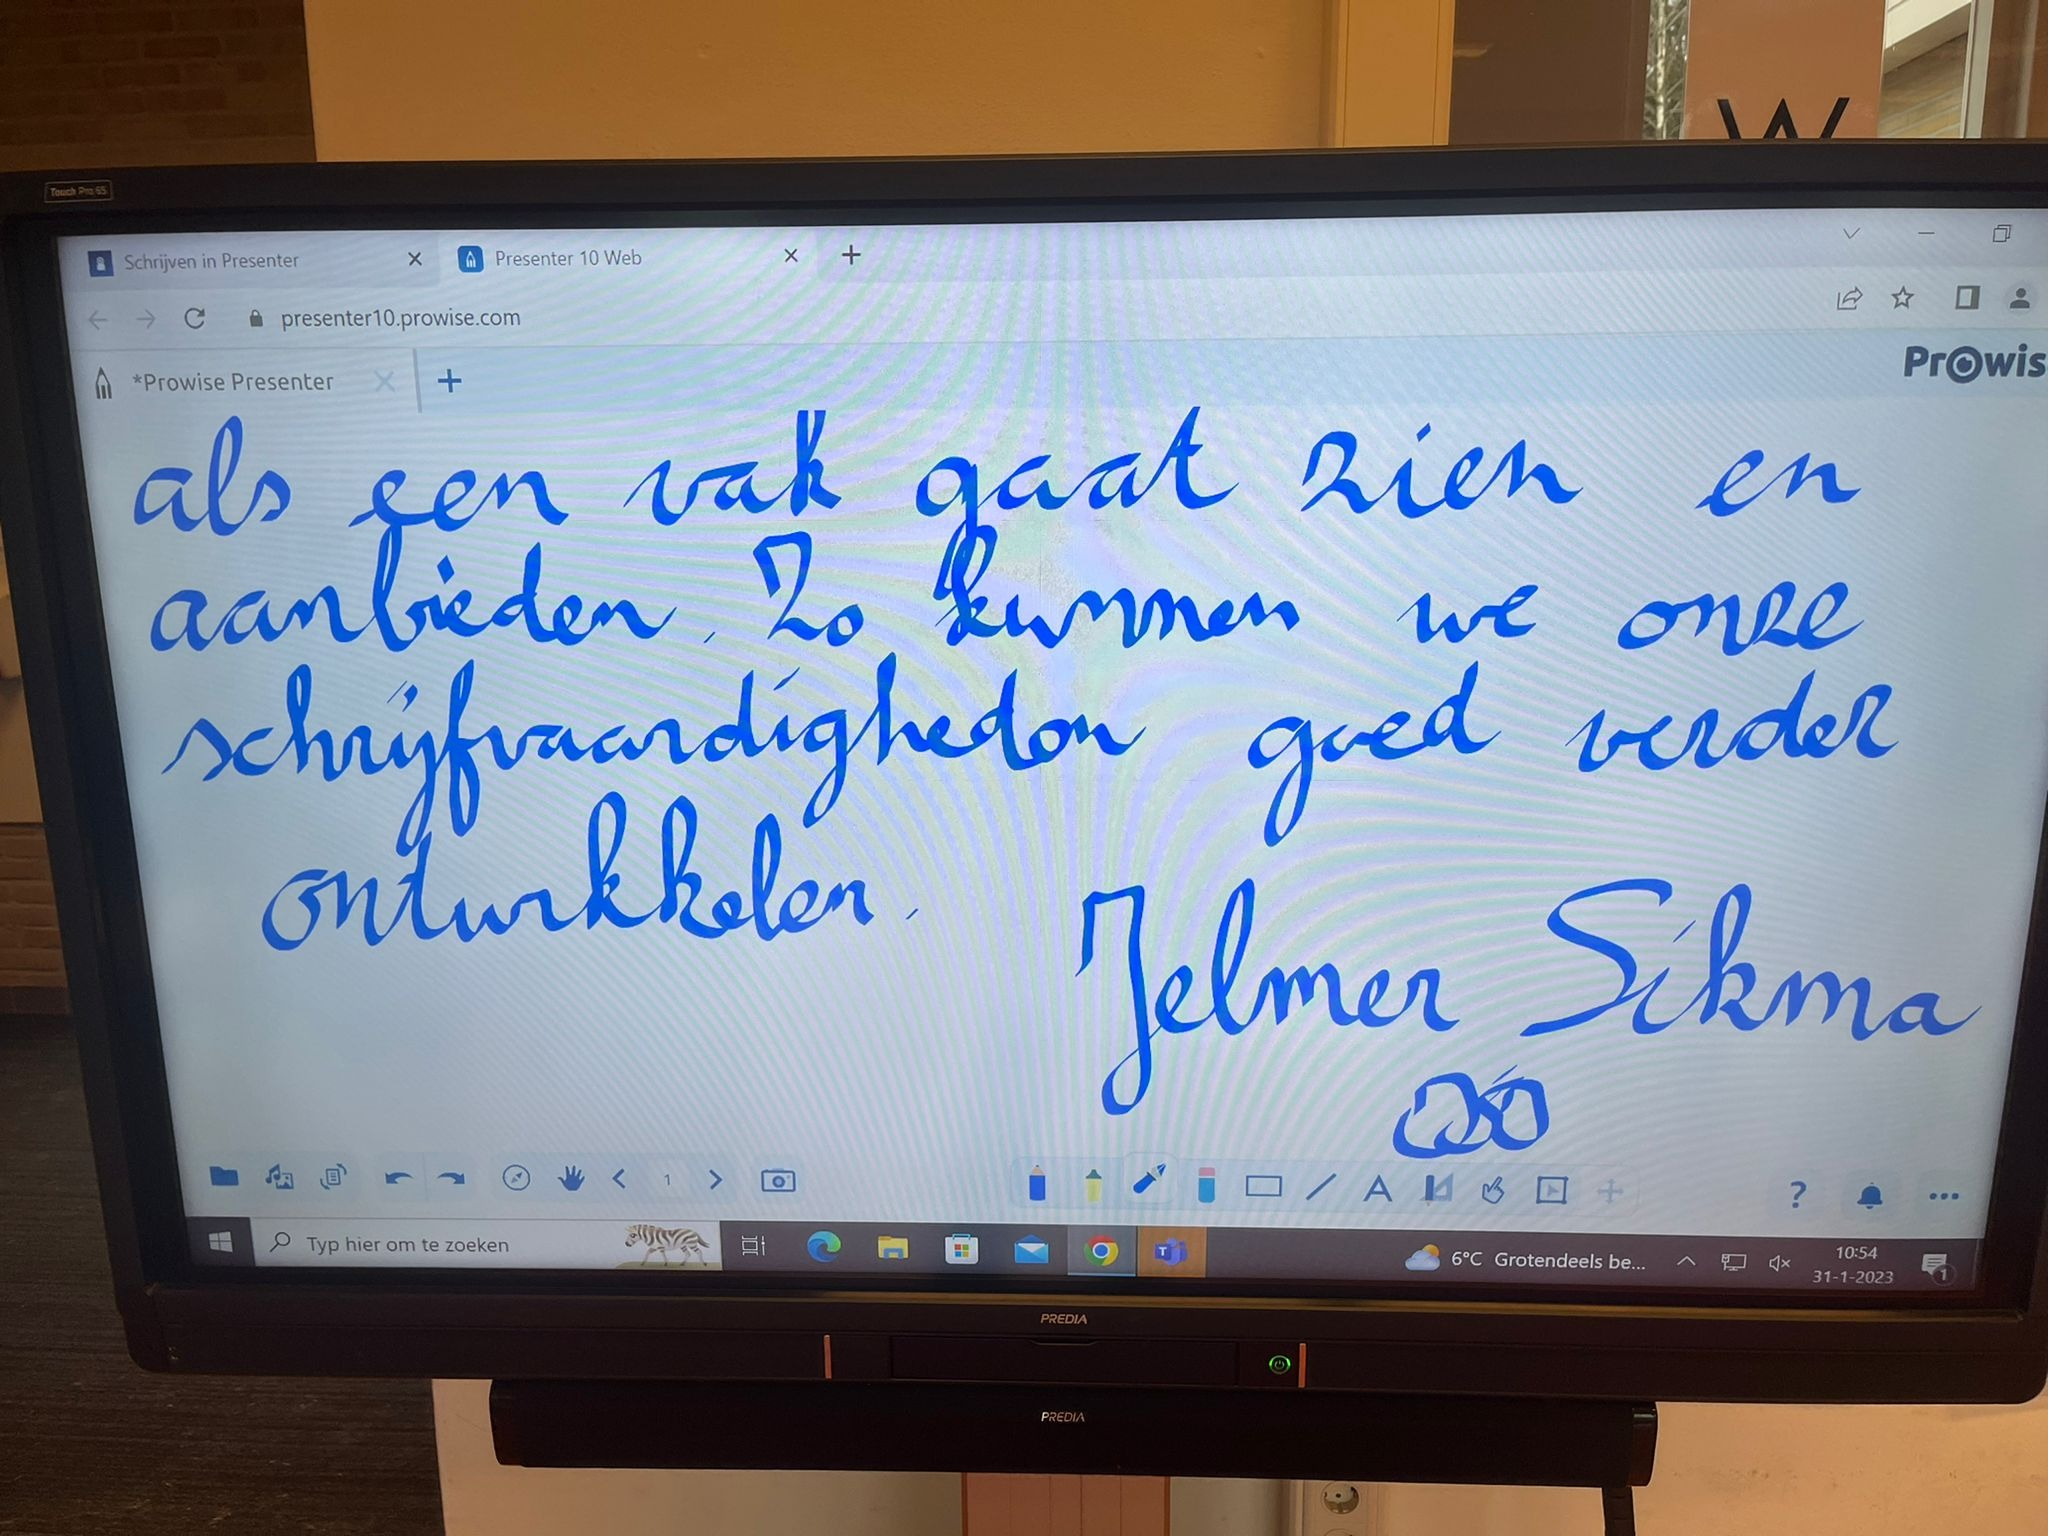 W
Touch Pro 65
Schrijven in Presenter
Presenter 10 Web
presenter10.prowise.com
*Prowise Presenter
Prowis
als een vak gaat zien en
aanbieden. Zo kunnen we onze
schrijfvaardigheden goed verder
ontwikkelen.
Jelmer Sikma
1
A
?
Typ hier om te zoeken
6°C Grotendeels be...
10:54
31-1-2023
1
PREDIA
PREDIA